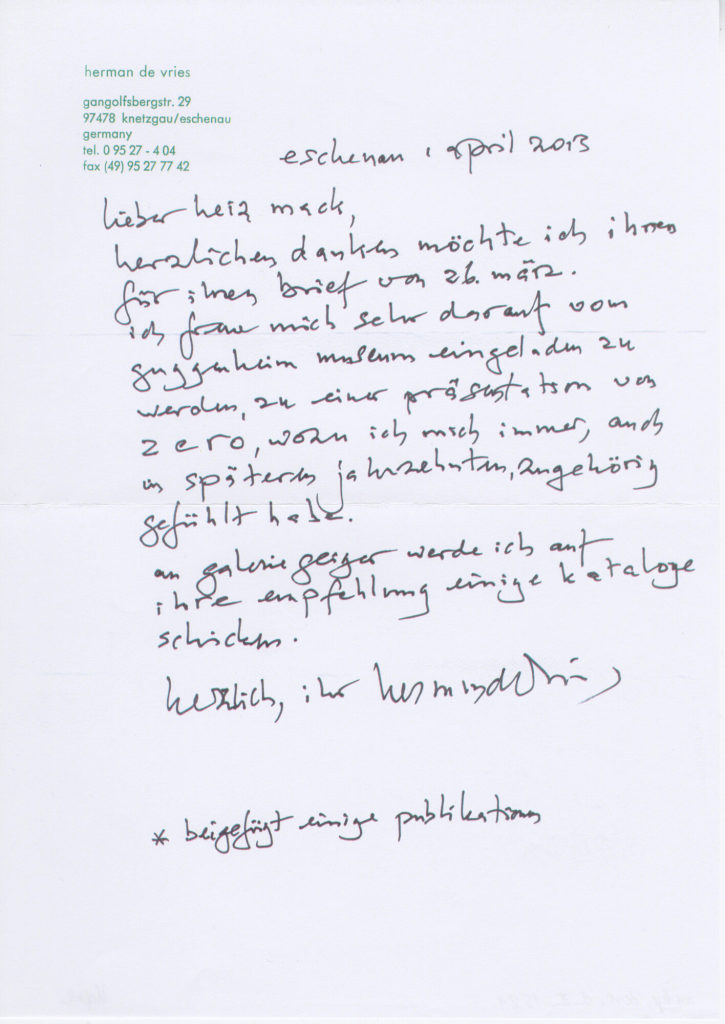 herman de vries
gangolfsbergstr. 29
97478 knetzgau/eschenau
germany
tel. 0 95 27 - 4 04
fax (49) 95 27 77 42
eschenau 1 april 2013
lieber heiz mack,
herzlichen danken möchte ich ihnen
für ihren brief von 26. märz.
ich freue mich sehr darauf vom
guggenheim museum eingeladen zu
werden, zu einer präsentation von
zero, wozu ich mich immer, auch
in späteren jahrzehnten, zugehörig
gefühlt habe.
an galerie geiger werde ich auf
ihre empfehlung einige kataloge
schicken.
herzlich, ihr herman de vries
* beigefügt einige publikations